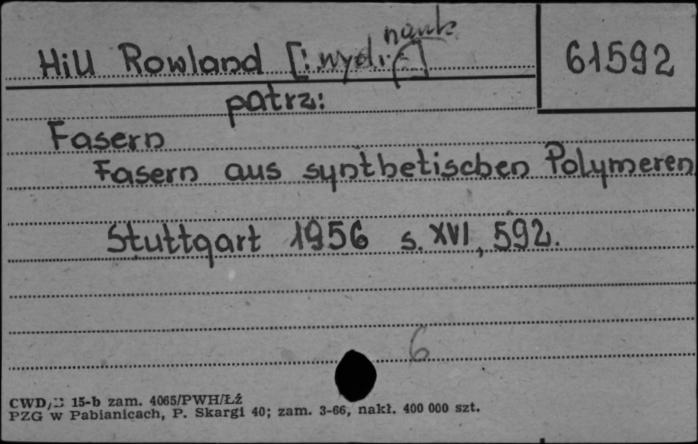 nauk
Hill Rowland [: wyd.:]
61592
patrz:
Fasern
Fasern aus synthetischen Polymeren
Stuttgart 1956 s. XVI, 592.
6
CWD, 15-b zam. 4065/PWH/Łź
PZG w Pabianicach, P. Skargi 40; zam. 3-66, nakł. 400 000 szt.